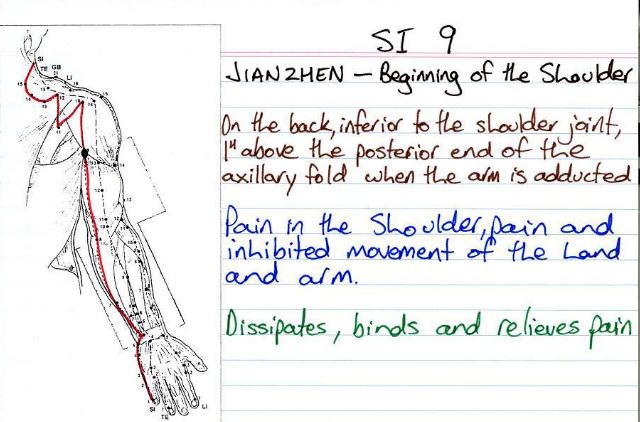 SI 9
JIANZHEN – Beginning of the Shoulder
On the back, inferior to the shoulder joint,
1" above the posterior end of the
axillary fold when the arm is adducted
Pain in the Shoulder, pain and
inhibited movement of the hand
and arm.
Dissipates, binds and relieves pain
SI
TE
GB
LI
SI
TE
LI